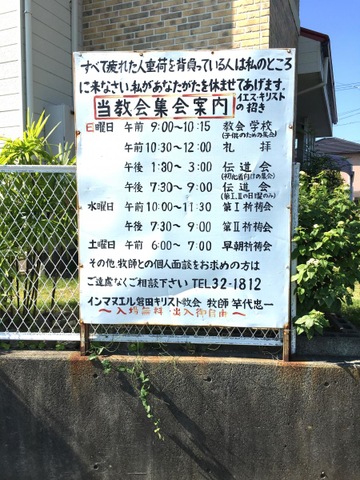 すべて疲れた人重荷を背負っている人は私のところ
に来なさい私があなたがたを休ませてあげます。
当教会集会案内 イエス・キリスト
の招き
日曜日 午前 9:00〜10:15 教会学校
(子供のための集会)
午前 10:30〜12:00 礼拝
午後 1:30〜3:00 伝道会
(初心者向けの集会)
午後 7:30〜9:00 伝道会
(第Ⅰ,Ⅲの日曜のみ)
水曜日 午前 10:00〜11:30 第Ⅰ祈祷会
午後 7:30〜9:00 第Ⅱ祈祷会
土曜日 午前 6:00〜7:00 早朝祈祷会
その他 牧師との個人面談をお求めの方は
ご遠慮なくご相談下さい TEL 32-1812
インマヌエル磐田キリスト教会 牧師 竿代忠一
〜入場無料・出入御自由〜